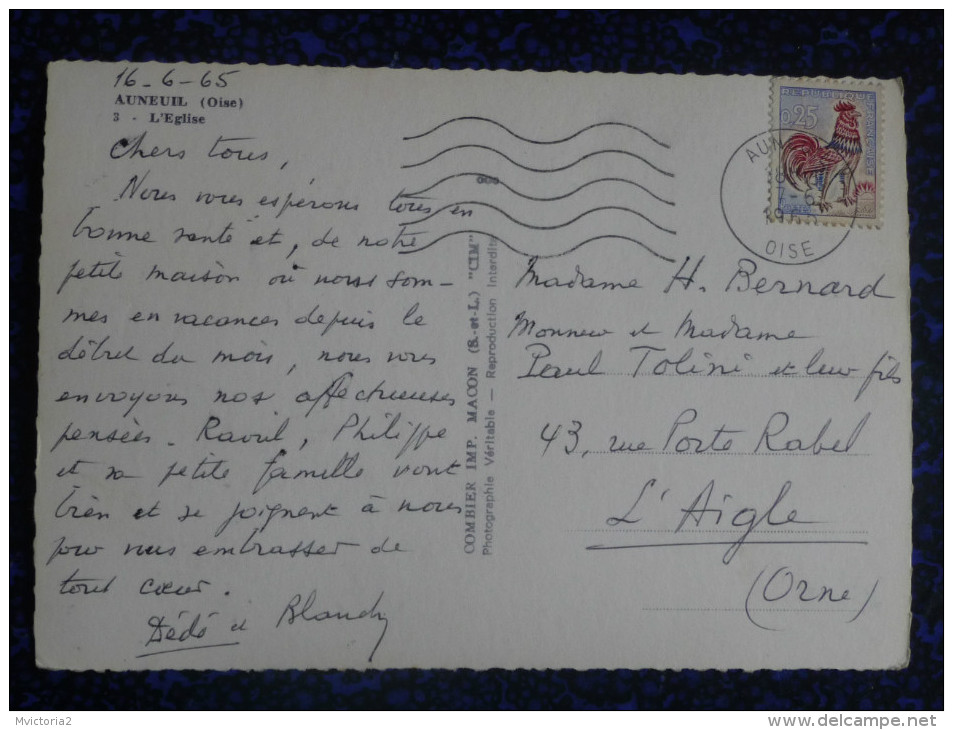 16-6-65
AUNEUIL (Oise)
3 - L'Eglise
Chers tous,
Nous vous espérons tous en
bonne santé et, de notre
petite maison où nous som-
mes en vacances depuis le
début du mois, nous vous
envoyons nos affectueuses
pensées. Raoul, Philippe
et sa petite famille vont
bien et se joignent à nous
pour vous embrasser de
tout cœur.
Dédé et Blandy
COMBIER IMP. MACON (S.-et-L.) "CIM"
Photographie Véritable — Reproduction Interdite
REPUBLIQUE FRANÇAISE
0,25
AUN
OISE
Madame H. Bernard
Monsieur et Madame
Paul Tolini et leur fils
43, rue Porte Rabel
L'Aigle
(Orne)
Mvictoria2
www.delcampe.net